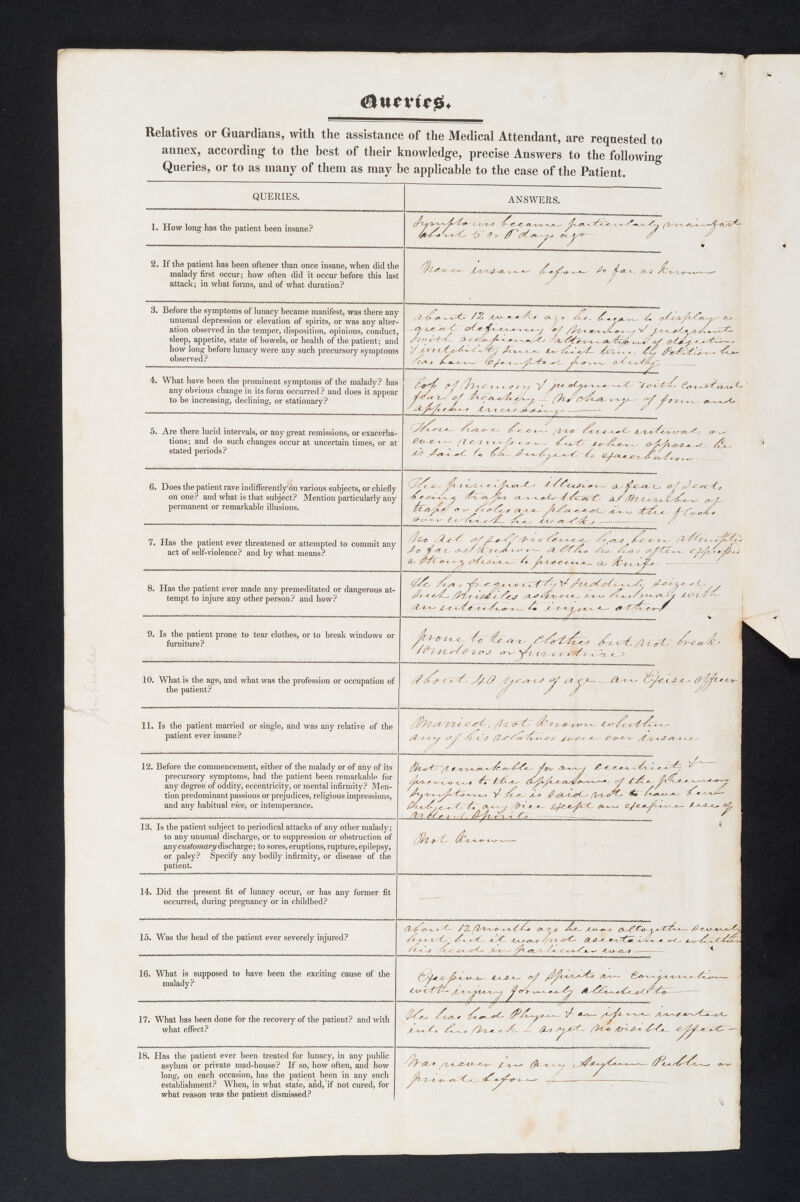 Queries.
Relatives or Guardians, with the assistance of the Medical Attendant, are requested to
annex, according to the best of their knowledge, precise Answers to the following
Queries, or to as many of them as may be applicable to the case of the Patient.
QUERIES.
ANSWERS.
1. How long has the patient been insane?
Symptoms became particularly manifest
about 5 or 6 days ago
2. If the patient has been oftener than once insane, when did the
malady first occur; how often did it occur before this last
attack; in what forms, and of what duration?
Never insane before so far as known
3. Before the symptoms of lunacy became manifest, was there any
unusual depression or elevation of spirits, or was any alter-
ation observed in the temper, disposition, opinions, conduct,
sleep, appetite, state of bowels, or health of the patient; and
how long before lunacy were any such precursory symptoms
observed?
about 12 weeks ago he began to display a
great deficiency of memory & judgment
with occasional alternations of dejection
& irritability since which time by Petition he
has been Exempted from duty
4. What have been the prominent symptoms of the malady? has
any obvious change in its form occurred? and does it appear
to be increasing, declining, or stationary?
Loss of Memory & judgment with constant
fear of treachery – No change of form and
appears increasing
5. Are there lucid intervals, or any great remissions, or exacerba-
tions; and do such changes occur at uncertain times, or at
stated periods?
There have been no lucid interval or
even remission but when opposed he
is said to be subject to exacerbation
6. Does the patient rave indifferently on various subjects, or chiefly
on one? and what is that subject? Mention particularly any
permanent or remarkable illusions.
The principal illusion a fear of Seats
being traps and that a Number of
traps or holes are placed in the floors
over which he walks
7. Has the patient ever threatened or attempted to commit any
act of self-violence? and by what means?
No act of self violence has been attempted
so far as known altho he has often expressed
a strong desire to procure a knife
8. Has the patient ever made any premeditated or dangerous at-
tempt to injure any other person? and how?
He has frequently & suddenly seized
such Missiles as were in his way with
an intention to injure others
9. Is the patient prone to tear clothes, or to break windows or
furniture?
prone to tear Clothes but not break
windows or furniture
10. What is the age, and what was the profession or occupation of
the patient?
About 40 years of age – an Excise officer
11. Is the patient married or single, and was any relative of the
patient ever insane?
Married, not known whether
any of his relatives were ever insane
12. Before the commencement, either of the malady or of any of its
precursory symptoms, had the patient been remarkable for
any degree of oddity, eccentricity, or mental infirmity? Men-
tion predominant passions or prejudices, religious impressions,
and any habitual vice, or intemperance.
Not remarkable for any eccentricity
previous to the appearance of the precursory
symptoms & he is said not to have been
Subject to any vice except an excessive use of
Ardent Spirits
13. Is the patient subject to periodical attacks of any other malady;
to any unusual discharge, or to suppression or obstruction of
any customary discharge; to sores, eruptions, rupture, epilepsy,
or palsy? Specify any bodily infirmity, or disease of the
patient.
Not Known
14. Did the present fit of lunacy occur, or has any former fit
occurred, during pregnancy or in childbed?
15. Was the head of the patient ever severely injured?
about 12 Months ago he was altogether severely
hurt, but it was not ascertained whether
his head in particular was
16. What is supposed to have been the exciting cause of the
malady?
Excessive use of Spirits in Conjunction
with injury formerly alluded to
17. What has been done for the recovery of the patient? and with
what effect?
He has had Physic & an issue inserted
into his Neck – as yet no visible effect –
18. Has the patient ever been treated for lunacy, in any public
asylum or private mad-house? If so, how often, and how
long, on each occasion, has the patient been in any such
establishment? When, in what state, and, if not cured, for
what reason was the patient dismissed?
Was never in any Asylum Public or
private before